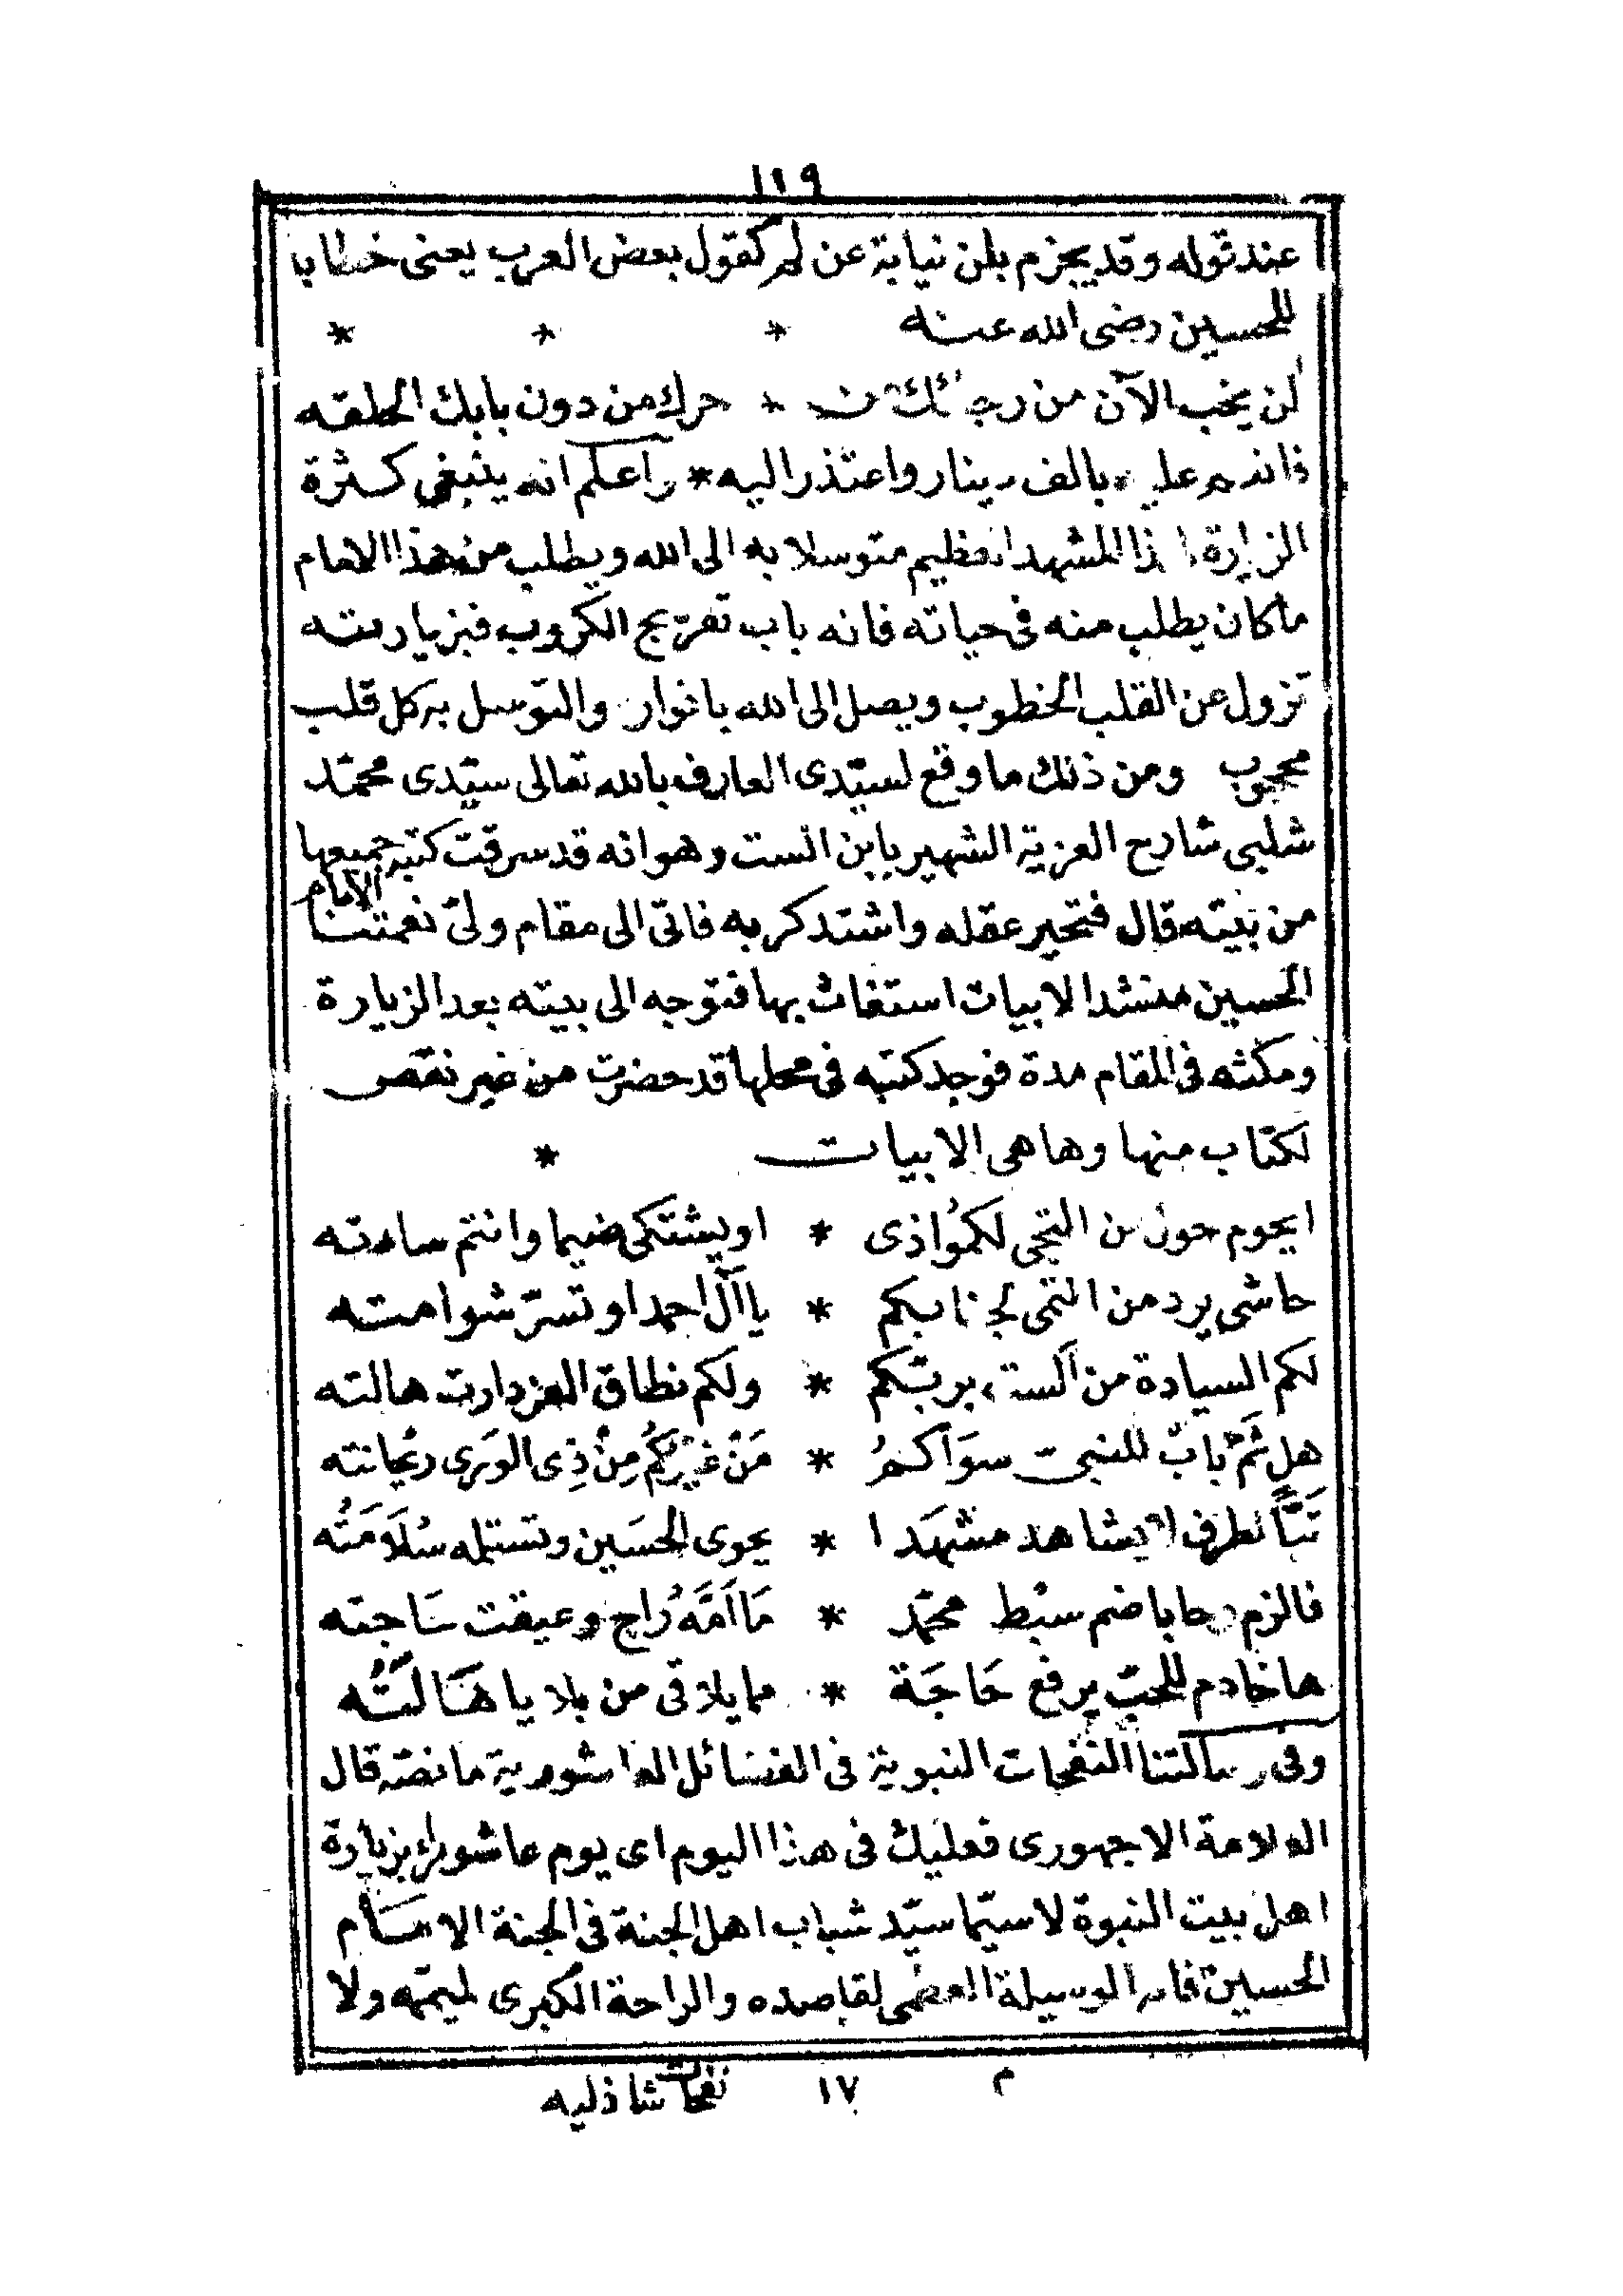 ١١٩
عند قوله وقد يجزم بلن نيابة عن لم كقول بعض العرب يعنى خطابا
للحسين رضى الله عنه * * *
لن يخب الآن من رجائك من * حرك من دون بابك الحلقه
فانعم عليه بالف دينار واعتذر اليه * واعلم انه ينبغى كثرة
الزيارة لهذا المشهد العظيم متوسلا به الى الله ويطلب من هذا الامام
ما كان يطلب منه فى حياته فانه باب تفريج الكروب فبزيارته
تزول عن القلب الخطوب ويصل الى الله بانواره والتوسل به كل قلب
محجوب ومن ذلك ما وقع لسيّدى العارف بالله تعالى سيّدى محمّد
شلبى شارح العزية الشهير بابن الست وهو انه قد سرقت كتبه جميعها
من بيته قال فتحير عقله واشتد كربه فاتى الى مقام ولىّ نعمتنا الامام
الحسين منشدا لابيات استغاث بها فتوجه الى بيته بعد الزيارة
ومكثه فى المقام مدة فوجد كتبه فى محلها قد حضرت من غير نقص
لكتاب منها وها هى الابيات *
ايحوم حول من التجى لكمُو اذى * او يشتكى ضيما وانتم سادته
حاشى يرد من انتمى لجنابكم * يا آل احمد او تسرّ شوامته
لكم السيادة من ألست بربّكم * ولكم نطاق العز دارت هالته
هل ثَمَّ بابٌ للنبىّ سوَاكمُ * مَنْ غيركُم مِنْ ذِى الوَرى ريحانته
تَبًّا لطرف لا يشاهد مشهَدا * يحوى الحسَين وتستلمه سُلاَمَتُه
فالزم رحابا ضم سبْط محمّد * مَا اَمَّهُ رُاجٍ وعيقت سَاجته
ها خادم للحبّ يرفع حَاجَة * مما يلاقى من بلايا هَالَتْهُ
وفى رسالتنا النفحات النبوية فى الفضائل العاشورية ما نصّه قال
العلامة الاجهورى فعليك فى هذا اليوم اى يوم عاشوراء بزيارة
اهل بيت النبوة لا سيّما سيّد شباب اهل الجنة فى الجنة الامام
الحسين فانه الوسيلة العظمى لقاصده والراحة الكبرى لميممه ولا
م ١٧ نفحات شاذليه